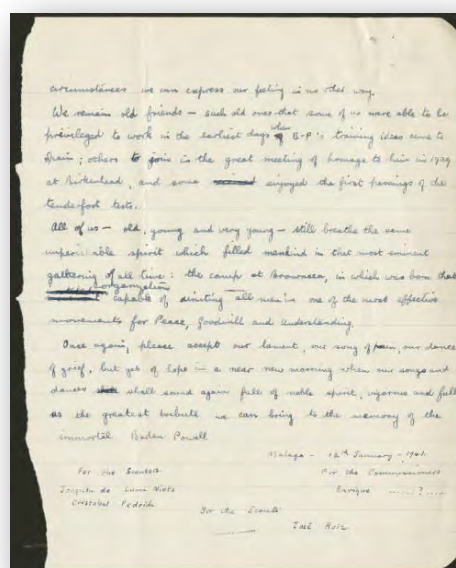 circumstances we can express our feeling in no other way.
We remain old friends — such old ones that some of us were able to be
priveleged to work in the earliest days when B-P's training ideas came to
Spain; others to join in the great meeting of homage to him in 1929
at Birkenhead, and some enjoyed the first pernings of the
tenderfoot tests.
All of us — old, young and very young — still breathe the same
imperishable spirit which filled mankind in that most eminent
gathering of all time: the camp at Brownsea, in which was born that
organization capable of uniting all men in one of the most effective
movements for Peace, Goodwill and Understanding.
Once again, please accept our lament, our song of pain, our dance
of grief, but yet of hope in a near new morning when our songs and
dances shall sound again full of noble spirit, vigorous and full
as the greatest tribute we can bring to the memory of the
immortal Baden Powell
Malaga - 12th January - 1941.
For the Scouters For the Commissioners
Joaquin de Luna Nieto Enrique ......?....
Cristobal
For the Scouts
José Ruiz